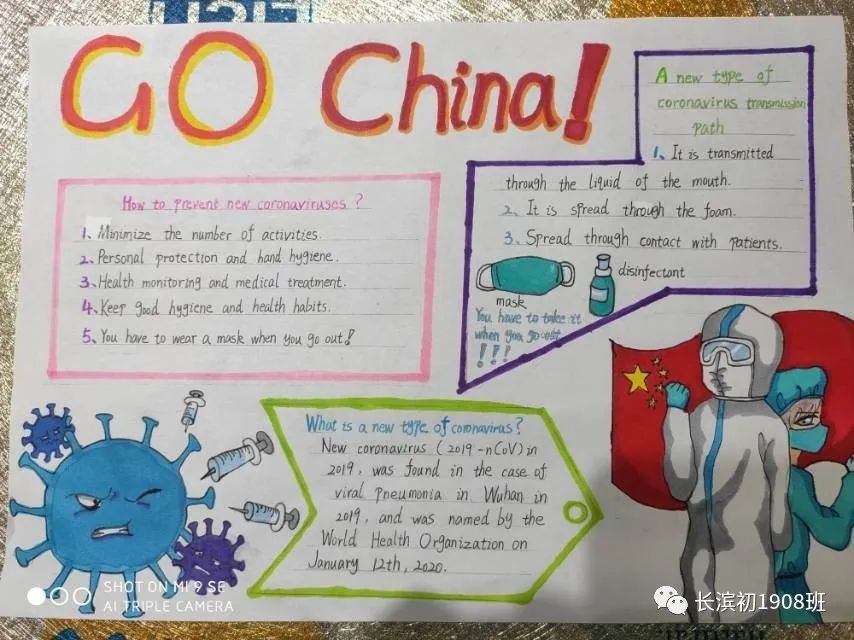 GO China!
How to prevent new coronaviruses?
1、Minimize the number of activities.
2、Personal protection and hand hygiene.
3、Health monitoring and medical treatment.
4、Keep good hygiene and health habits.
5、You have to wear a mask when you go out!
A new type of
coronavirus transmission
path
1、It is transmitted
through the liquid of the mouth.
2、It is spread through the foam.
3、Spread through contact with patients.
mask
disinfectant
You have to take it
when you go out
!!!
What is a new type of coronavirus?
New coronavirus (2019-nCoV) in
2019, was found in the case of
viral pneumonia in Wuhan in
2019, and was named by the
World Health Organization on
January 12th, 2020.
SHOT ON MI 9 SE
AI TRIPLE CAMERA
长滨初1908班